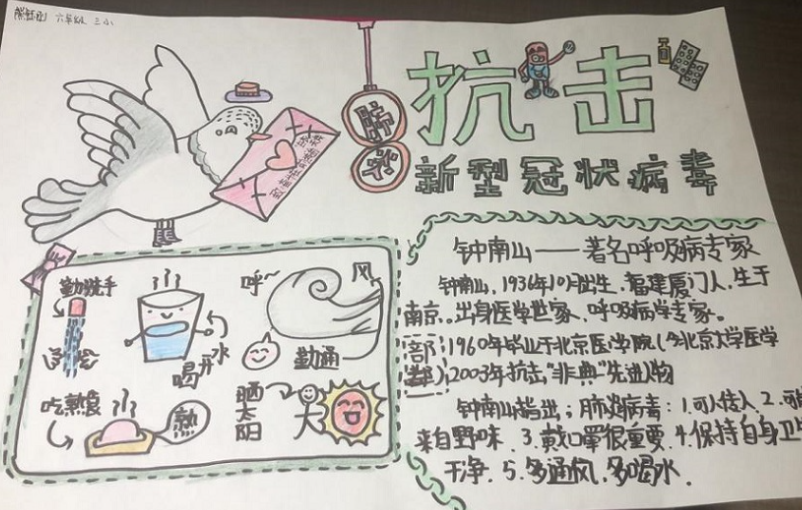 六年级 三小
抗击
肺炎
新型冠状病毒
勤洗手
喝开水
呼~
风
勤通
吃熟食
熟
晒太阳
钟南山——著名呼吸病专家
钟南山,1936年10月出生,福建厦门人,生于
南京,出身医学世家、呼吸病学专家。
1960年毕业于北京医学院(今北京大学医学
部)2003年抗击"非典"先进人物
钟南山指出;肺炎病毒:1.可人传人 2.可
来自野味.3.戴口罩很重要.4.保持自身卫
干净.5.多通风,多喝水.